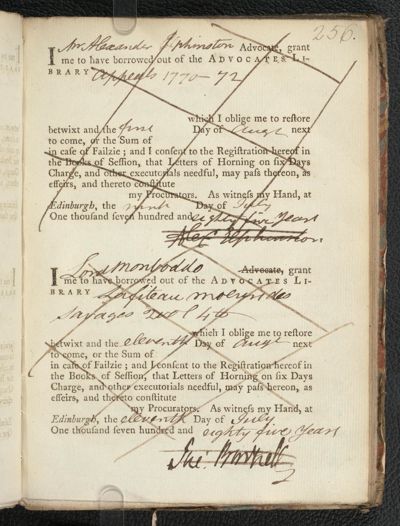 256.
I Mr Alexander Elphinston Advocate, grant
me to have borrowed out of the ADVOCATES LI-
BRARY Appeals 1770-72
which I oblige me to reſtore
betwixt and the Day of Augt next
to come, or the Sum of
in caſe of Failzie; and I conſent to the Regiſtration hereof in
the Books of Seſſion, that Letters of Horning on ſix Days
Charge, and other executorials needful, may paſs thereon, as
effeirs, and thereto conſtitute
my Procurators. As witneſs my Hand, at
Edinburgh, the ninth Day of July
One thouſand ſeven hundred and eighty five Years
Alexr Elphinston.
I Lord Monboddo Advocate, grant
me to have borrowed out of the ADVOCATES LI-
BRARY Lafiteau moeurs des
Sauages 2 vol 4to
which I oblige me to reſtore
betwixt and the eleventh Day of Augt next
to come, or the Sum of
in caſe of Failzie; and I conſent to the Regiſtration hereof in
the Books of Seſſion, that Letters of Horning on ſix Days
Charge, and other executorials needful, may paſs hereon, as
effeirs, and thereto conſtitute
my Procurators. As witneſs my Hand, at
Edinburgh, the eleventh Day of July
One thouſand ſeven hundred and eighty five Years
Jas: Burnett